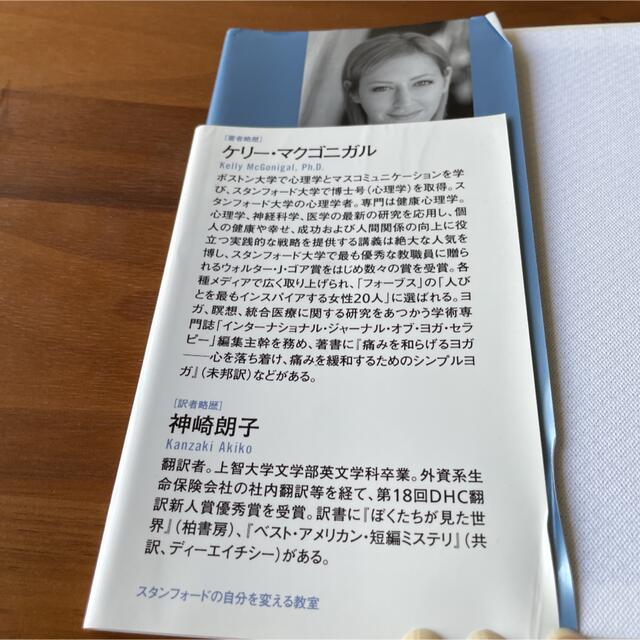 [著者略歴]
ケリー・マクゴニガル
Kelly McGonigal, Ph.D.
ボストン大学で心理学とマスコミュニケーションを学
び、スタンフォード大学で博士号(心理学)を取得。ス
タンフォード大学の心理学者。専門は健康心理学。
心理学、神経科学、医学の最新の研究を応用し、個
人の健康や幸せ、成功および人間関係の向上に役
立つ実践的な戦略を提供する講義は絶大な人気を
博し、スタンフォード大学で最も優秀な教職員に贈ら
れるウォルター・J・ゴア賞をはじめ数々の賞を受賞。各
種メディアで広く取り上げられ、「フォーブス」の「人び
とを最もインスパイアする女性20人」に選ばれる。ヨ
ガ、瞑想、統合医療に関する研究をあつかう学術専
門誌「インターナショナル・ジャーナル・オブ・ヨガ・セラ
ピー」編集主幹を務め、著書に『痛みを和らげるヨガ
――心を落ち着け、痛みを緩和するためのシンプルヨ
ガ』(未邦訳)などがある。
[訳者略歴]
神崎朗子
Kanzaki Akiko
翻訳者。上智大学文学部英文学科卒業。外資系生
命保険会社の社内翻訳等を経て、第18回DHC翻
訳新人賞優秀賞を受賞。訳書に『ぼくたちが見た世
界』(柏書房)、『ベスト・アメリカン・短編ミステリ』(共
訳、ディーエイチシー)がある。
スタンフォードの自分を変える教室